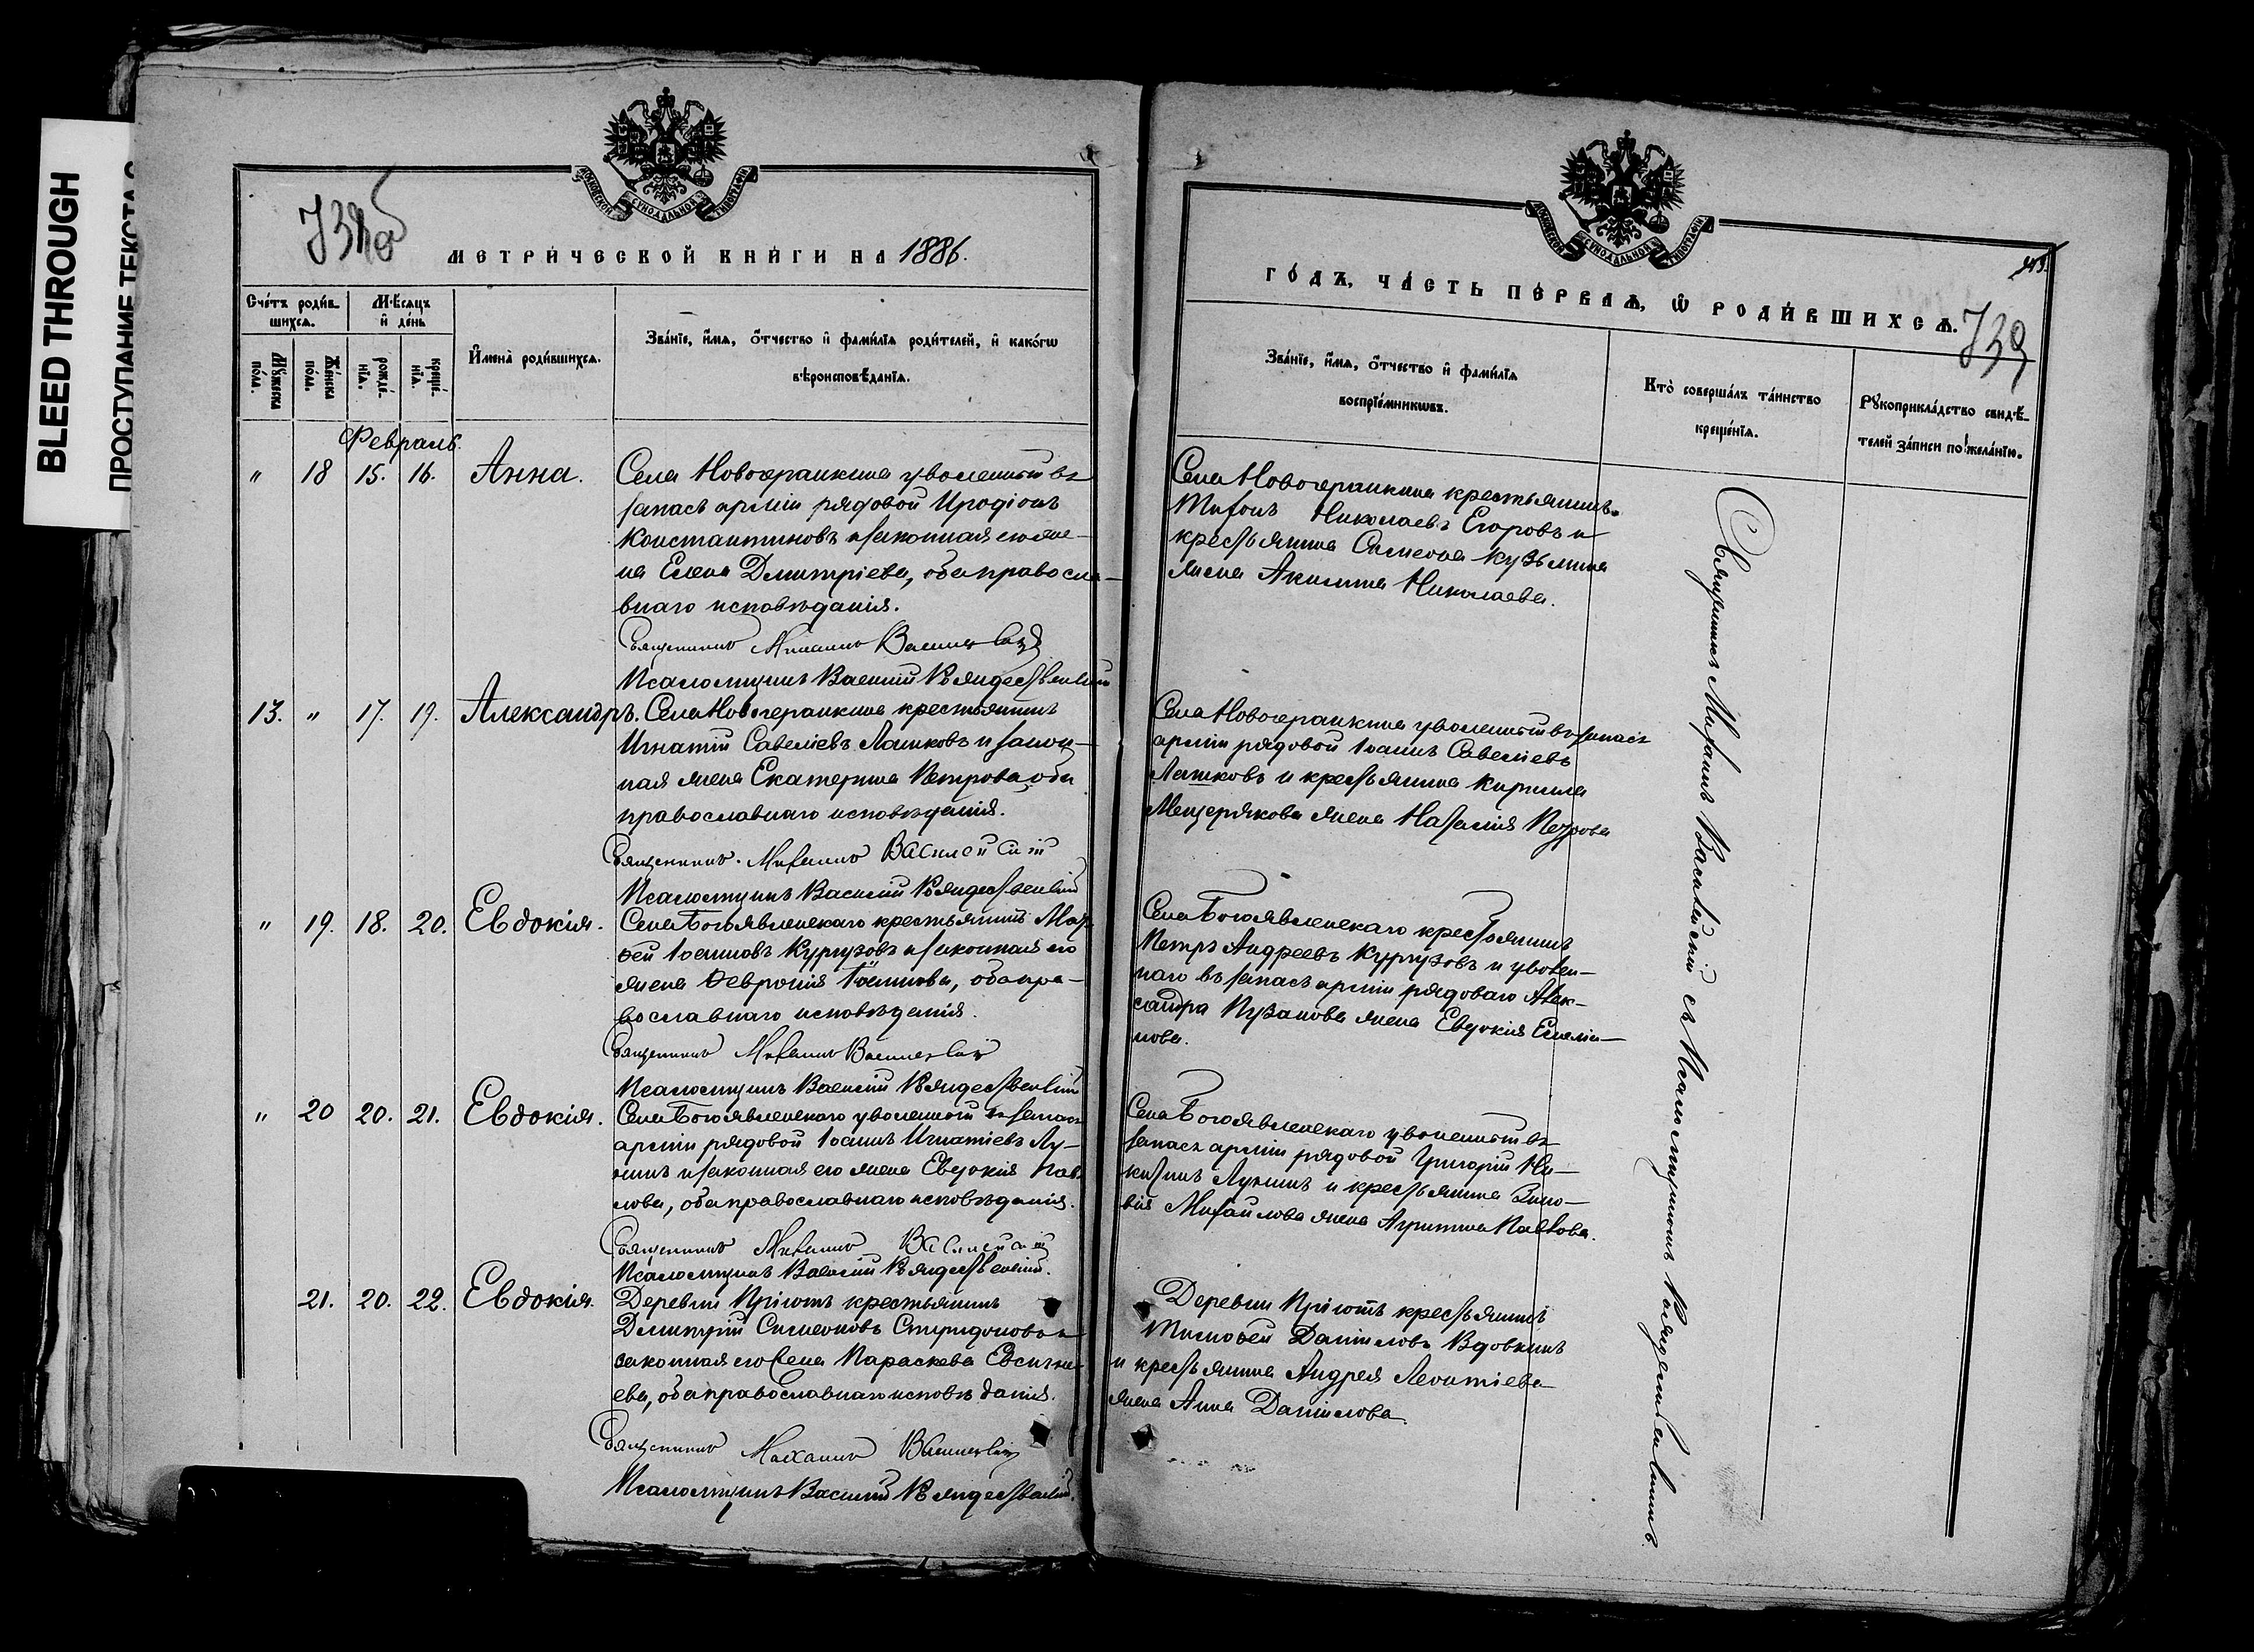 BLEED THROUGH
ПРОСТУПАНИЕ ТЕКСТА
МОСКОВСКОЙ СѴНОДАЛЬНОЙ ТИПОГРАФІИ
МЕТРИЧЕСКОЙ КНИГИ НА 1886.
Счетъ родив-
шихся.
Мѣсяцъ
и день
Мужеска
пола.
Женска
пола.
рожде-
нія.
креще-
нія.
Имена родившихся.
Званіе, имя, отчество и фамилія родителей, и какогѡ
вѣроисповѣданія.
Февраль.
" 18 15. 16. Анна.
Села Новогераикина уволенный въ
запасъ арміи рядовой Иродіонъ
Константиновъ и законная его же-
на Елена Дмитріева, оба правосла-
внаго исповѣданія.
Священникъ Михаилъ
Псаломщикъ Василий Рождественскій
13. " 17. 19. Александръ.
Села Новогераикина крестьянинъ
Игнатій Савеліевъ Лашковъ и закон-
ная жена Екатерина Петрова, оба
православнаго исповѣданія.
Священникъ Михаилъ
Псаломщикъ Василій Рождественскій
" 19. 18. 20. Евдокія.
Села Богоявленскаго крестьянинъ Мат-
ѳей Іоанновъ Кургузовъ и законная его
жена Ѳевронія Іоаннова, оба пра-
вославнаго исповѣданія.
Священникъ Михаилъ
Псаломщикъ Василій Рождественскій
" 20 20. 21. Евдокія.
Села Богоявленскаго уволенный въ запасъ
арміи рядовой Іоаннъ Игнатіевъ Лу-
кинъ и законная его жена Евдокія Пав-
лова, оба православнаго исповѣданія.
Священникъ Михаилъ
Псаломщикъ Василій Рождественскій.
21. 20. 22. Евдокія.
Деревни Пріютъ крестьянинъ
Димитрій Симеоновъ Спиридоновъ и
законная его жена Параскева Евсигне-
ева, оба православнаго исповѣданія.
Священникъ Михаилъ
Псаломщикъ Василій Рождественскій.
МОСКОВСКОЙ СѴНОДАЛЬНОЙ ТИПОГРАФІИ
ГОДЪ, ЧАСТЬ ПЕРВАЯ, Ѡ РОДИВШИХСЯ.
739
Званіе, имя, отчество и фамилія
воспріемниковъ.
Кто совершалъ таинство
крещенія.
Рукоприкладство свидѣ-
телей записи по желанію.
Села Новогераикина крестьянинъ
Тихонъ Николаевъ Егоровъ и
крестьянина Симеона Кузьмина
жена Акилина Николаева.
Села Новогераикина уволенный въ запасъ
арміи рядовой Іоаннъ Савеліевъ
Лашковъ и крестьянина Кирилла
Мещерякова жена Наталія Петрова
Села Богоявленскаго крестьянинъ
Петръ Андреевъ Кургузовъ и уволен-
наго въ запасъ арміи рядоваго Алек-
сандра Пузанова жена Евдокія Емелья-
нова.
Села Богоявленскаго уволенный въ
запасъ арміи рядовой Григорій Ни-
китинъ Лукинъ и крестьянина Зино-
вія Михайлова жена Агрипина Павлова.
Деревни Пріютъ крестьянинъ
Тимоѳей Даниловъ Вдовкинъ
и крестьянина Андрея Леонтіева
жена Анна Данилова.
Священникъ Михаилъ Васильевскій съ Псаломщикомъ Рождественскимъ